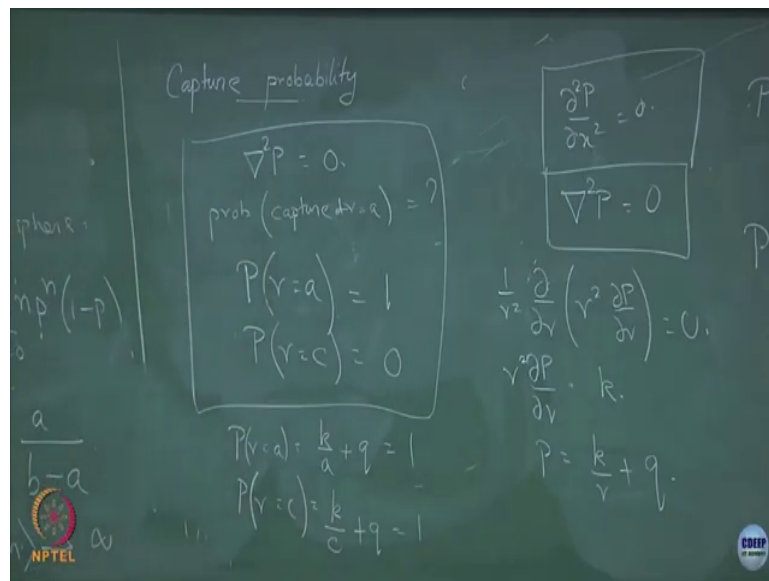 Capture probability
∇²P = 0.
prob (capture at r=a) = ?
P(r=a) = 1
P(r=c) = 0
P(r=a) = k/a + q = 1
P(r=c) = k/c + q = 1
∂²P/∂x² = 0.
∇²P = 0
1/r² ∂/∂r (r² ∂P/∂r) = 0.
r² ∂P/∂r = k.
P = k/r + q.
sphere.
n pⁿ(1-p)
a/(b-a)
∞
P
P
NPTEL
CDEEP